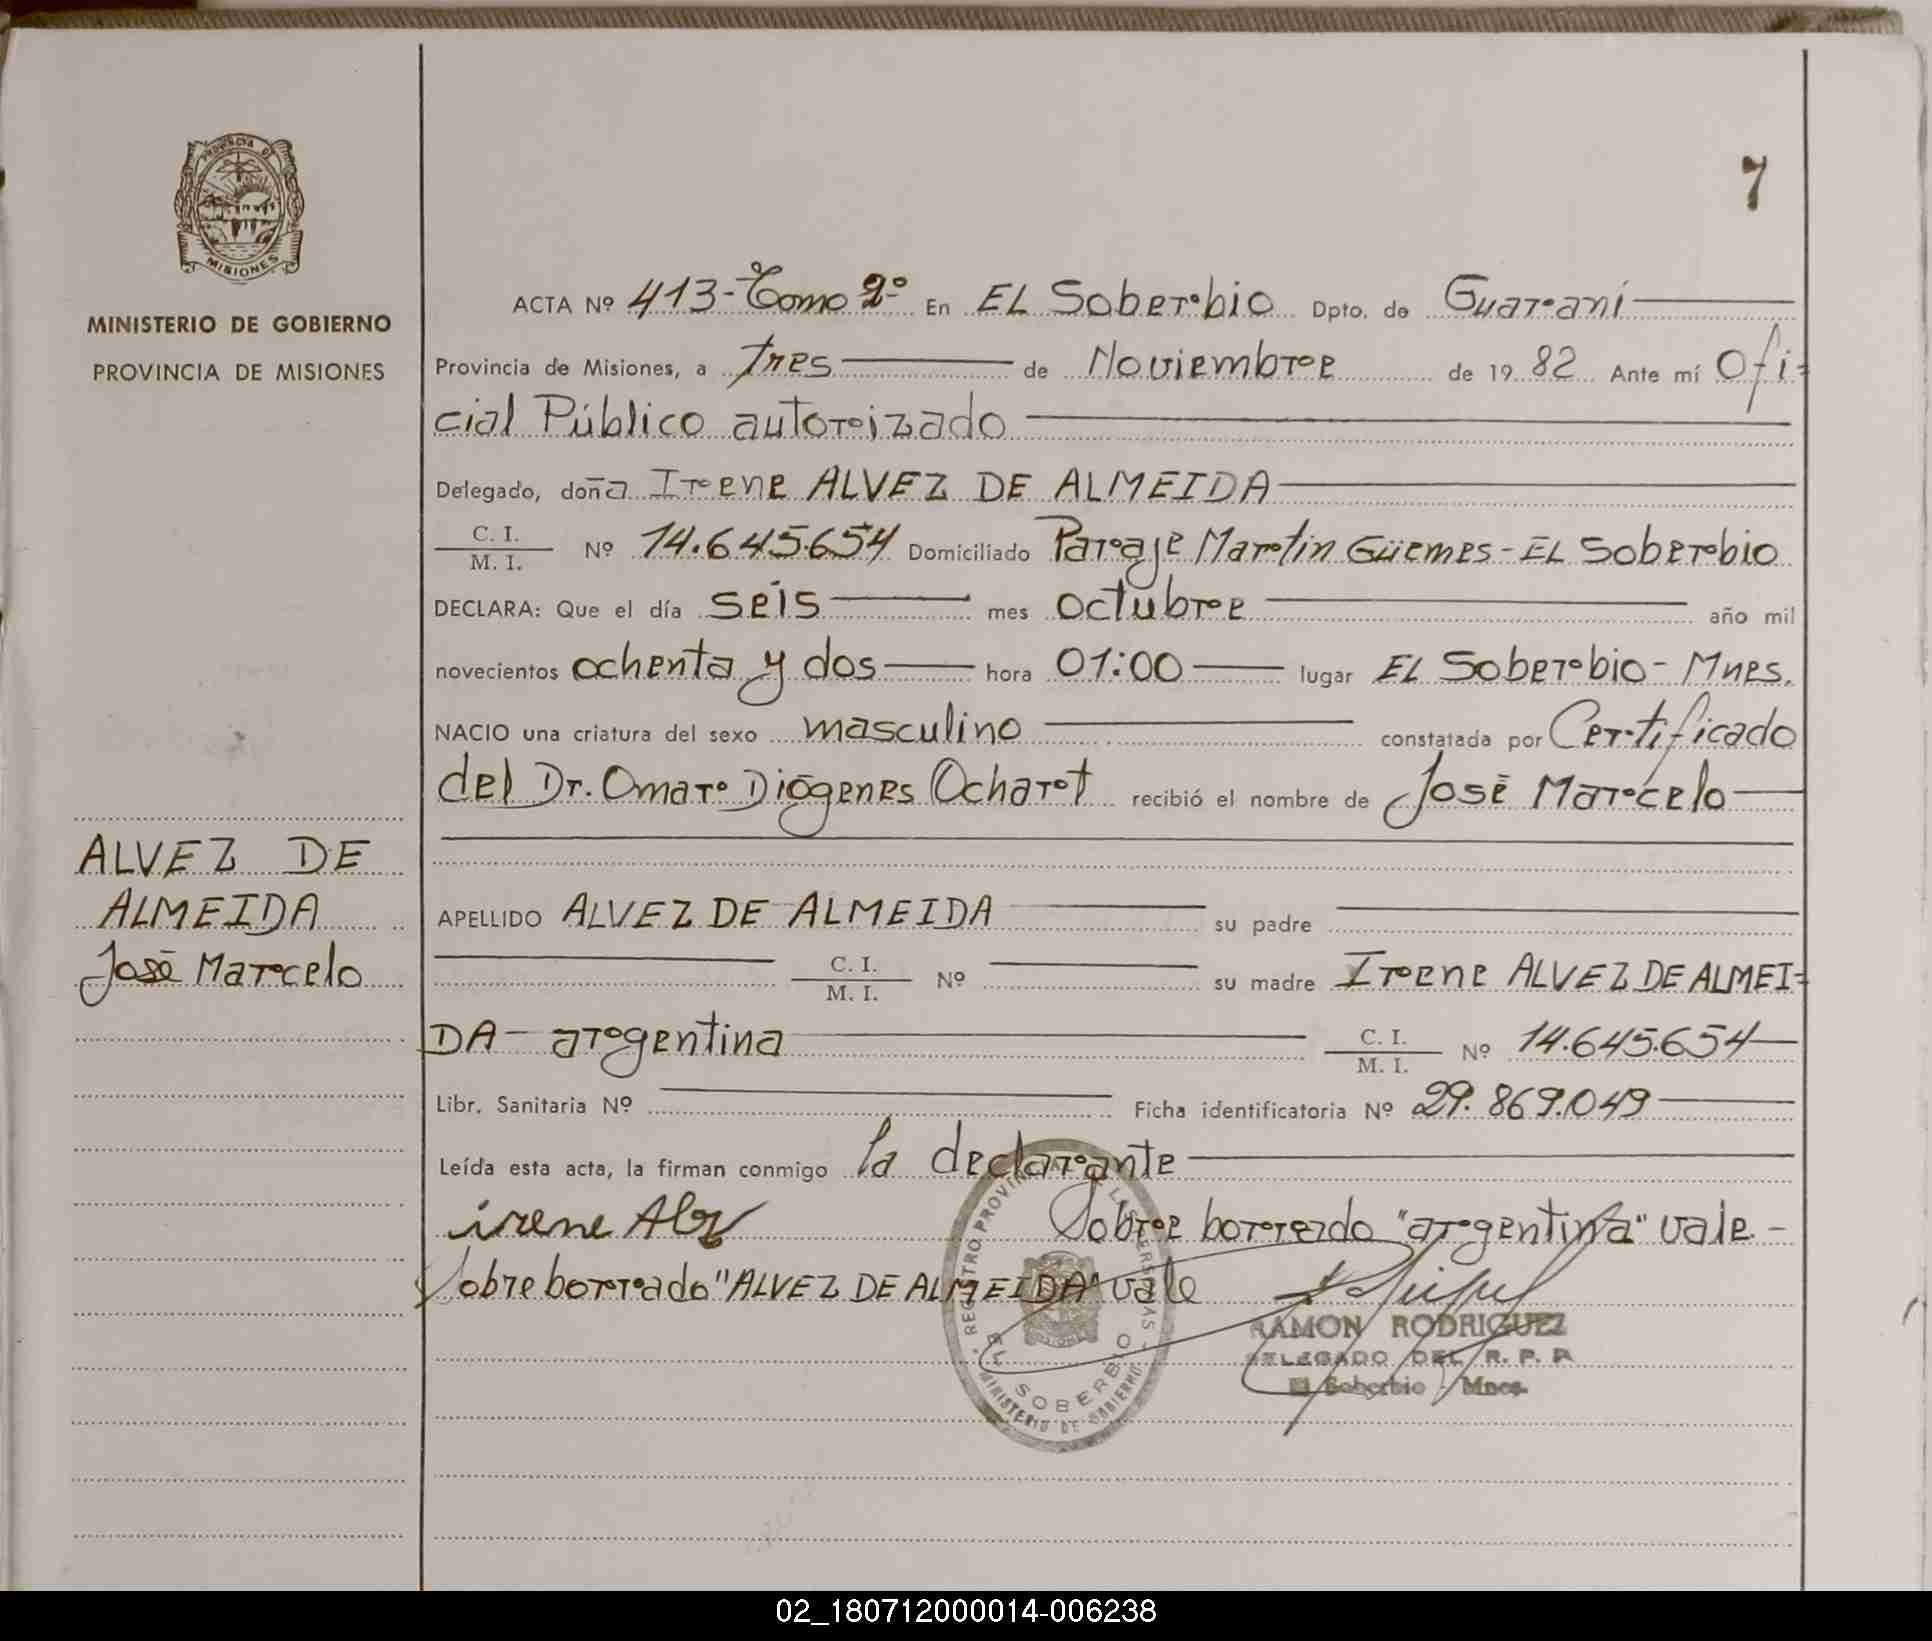 7
PROVINCIA DE
MISIONES
MINISTERIO DE GOBIERNO
PROVINCIA DE MISIONES
ALVEZ DE
ALMEIDA
José Marcelo
ACTA Nº 413-Tomo 2º En EL Soberbio Dpto. de Guaraní
Provincia de Misiones, a tres de Noviembre de 19 82 Ante mí Ofi=
cial Público autorizado
Delegado, doña Irene ALVEZ DE ALMEIDA
C. I.
M. I. Nº 14.645.654 Domiciliado Paraje Martin Güemes - EL Soberbio
DECLARA: Que el día seis mes octubre año mil
novecientos ochenta y dos hora 01:00 lugar EL Soberbio - Mnes.
NACIO una criatura del sexo masculino constatada por Certificado
del Dr. Omar Diógenes Ochart recibió el nombre de José Marcelo
APELLIDO ALVEZ DE ALMEIDA su padre
C. I.
M. I. Nº su madre Irene ALVEZ DE ALMEI=
DA - argentina C. I.
M. I. Nº 14.645.654
Libr. Sanitaria Nº Ficha identificatoria Nº 29.869.049
Leída esta acta, la firman conmigo la declarante
irene Sobre borrado "argentina" vale.-
Sobre borrado "ALVEZ DE ALMEIDA" vale
RAMON RODRIGUEZ
DELEGADO DEL R. P. P.
El Soberbio - Mnes.
REGISTRO PROVINCIAL DE LAS PERSONAS
EL SOBERBIO
MINISTERIO DE GOBIERNO
02_180712000014-006238